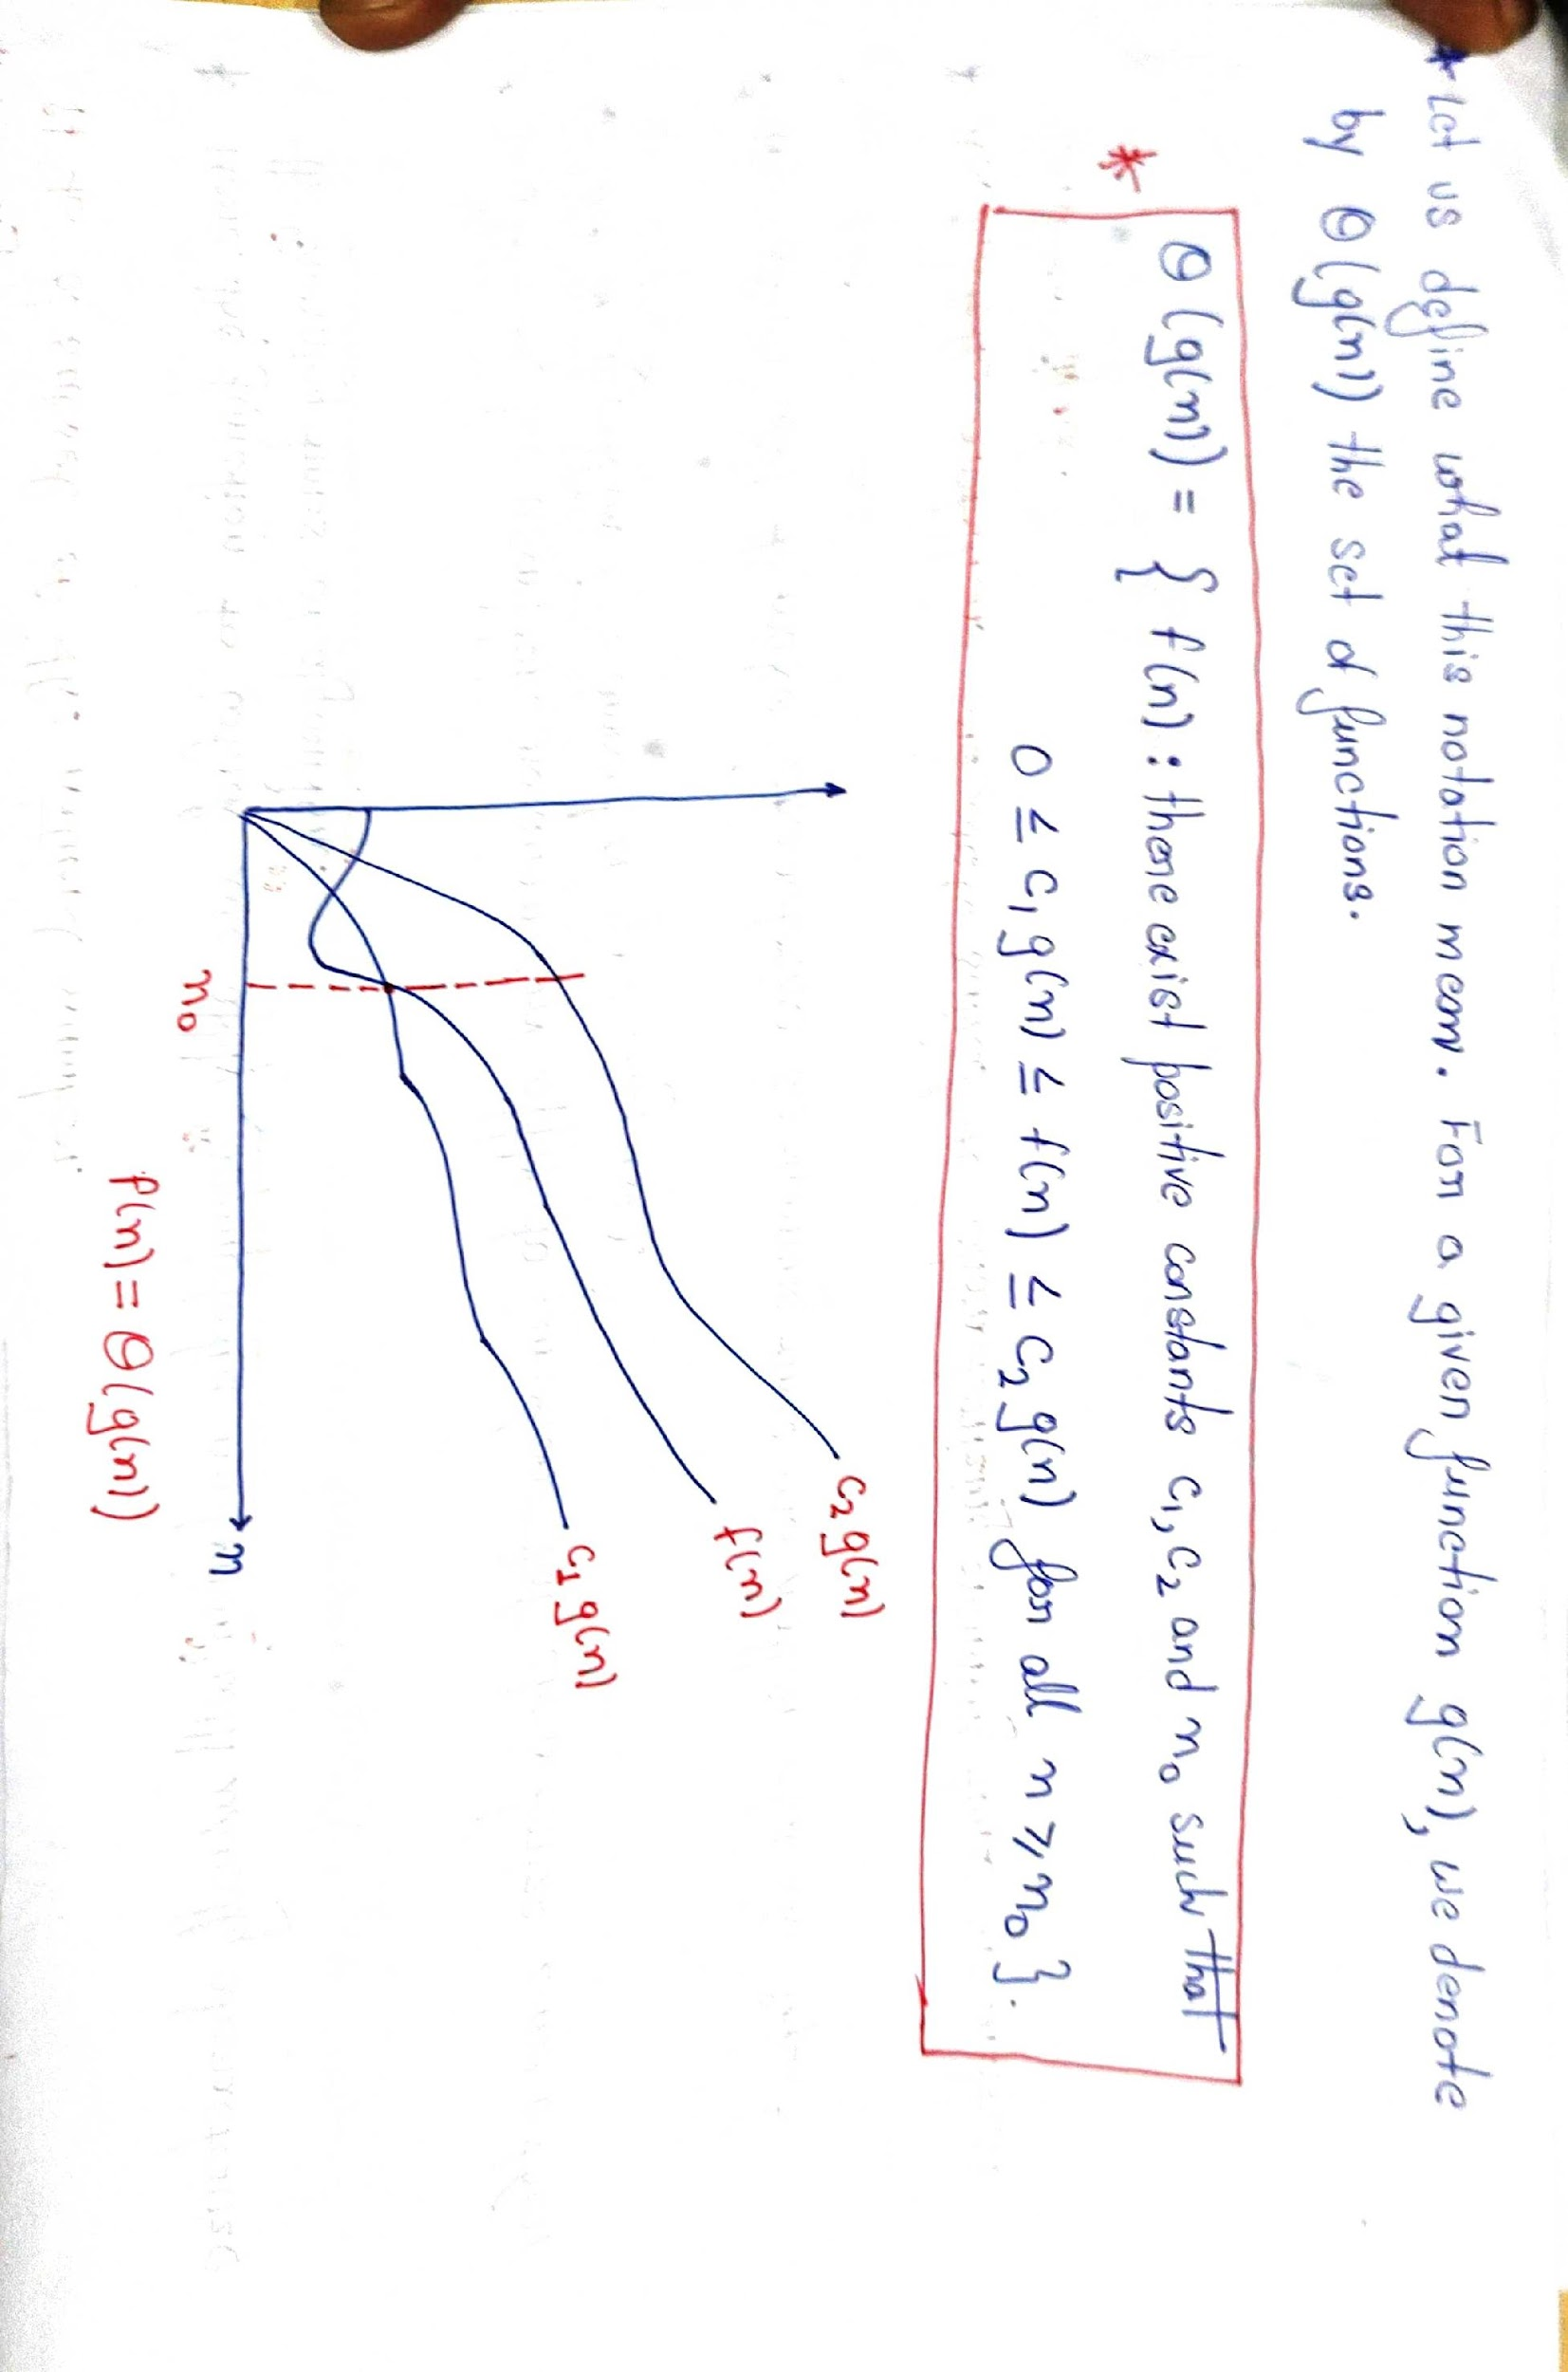 * Let us define what this notation mean. For a given function g(n), we denote
by Θ(g(n)) the set of functions.
* Θ(g(n)) = { f(n) : there exist positive constants c₁, c₂ and n₀ such that
0 ≤ c₁ g(n) ≤ f(n) ≤ c₂ g(n) for all n ≥ n₀ }.
c₂ g(n)
f(n)
c₁ g(n)
n₀
n
f(n) = Θ(g(n))